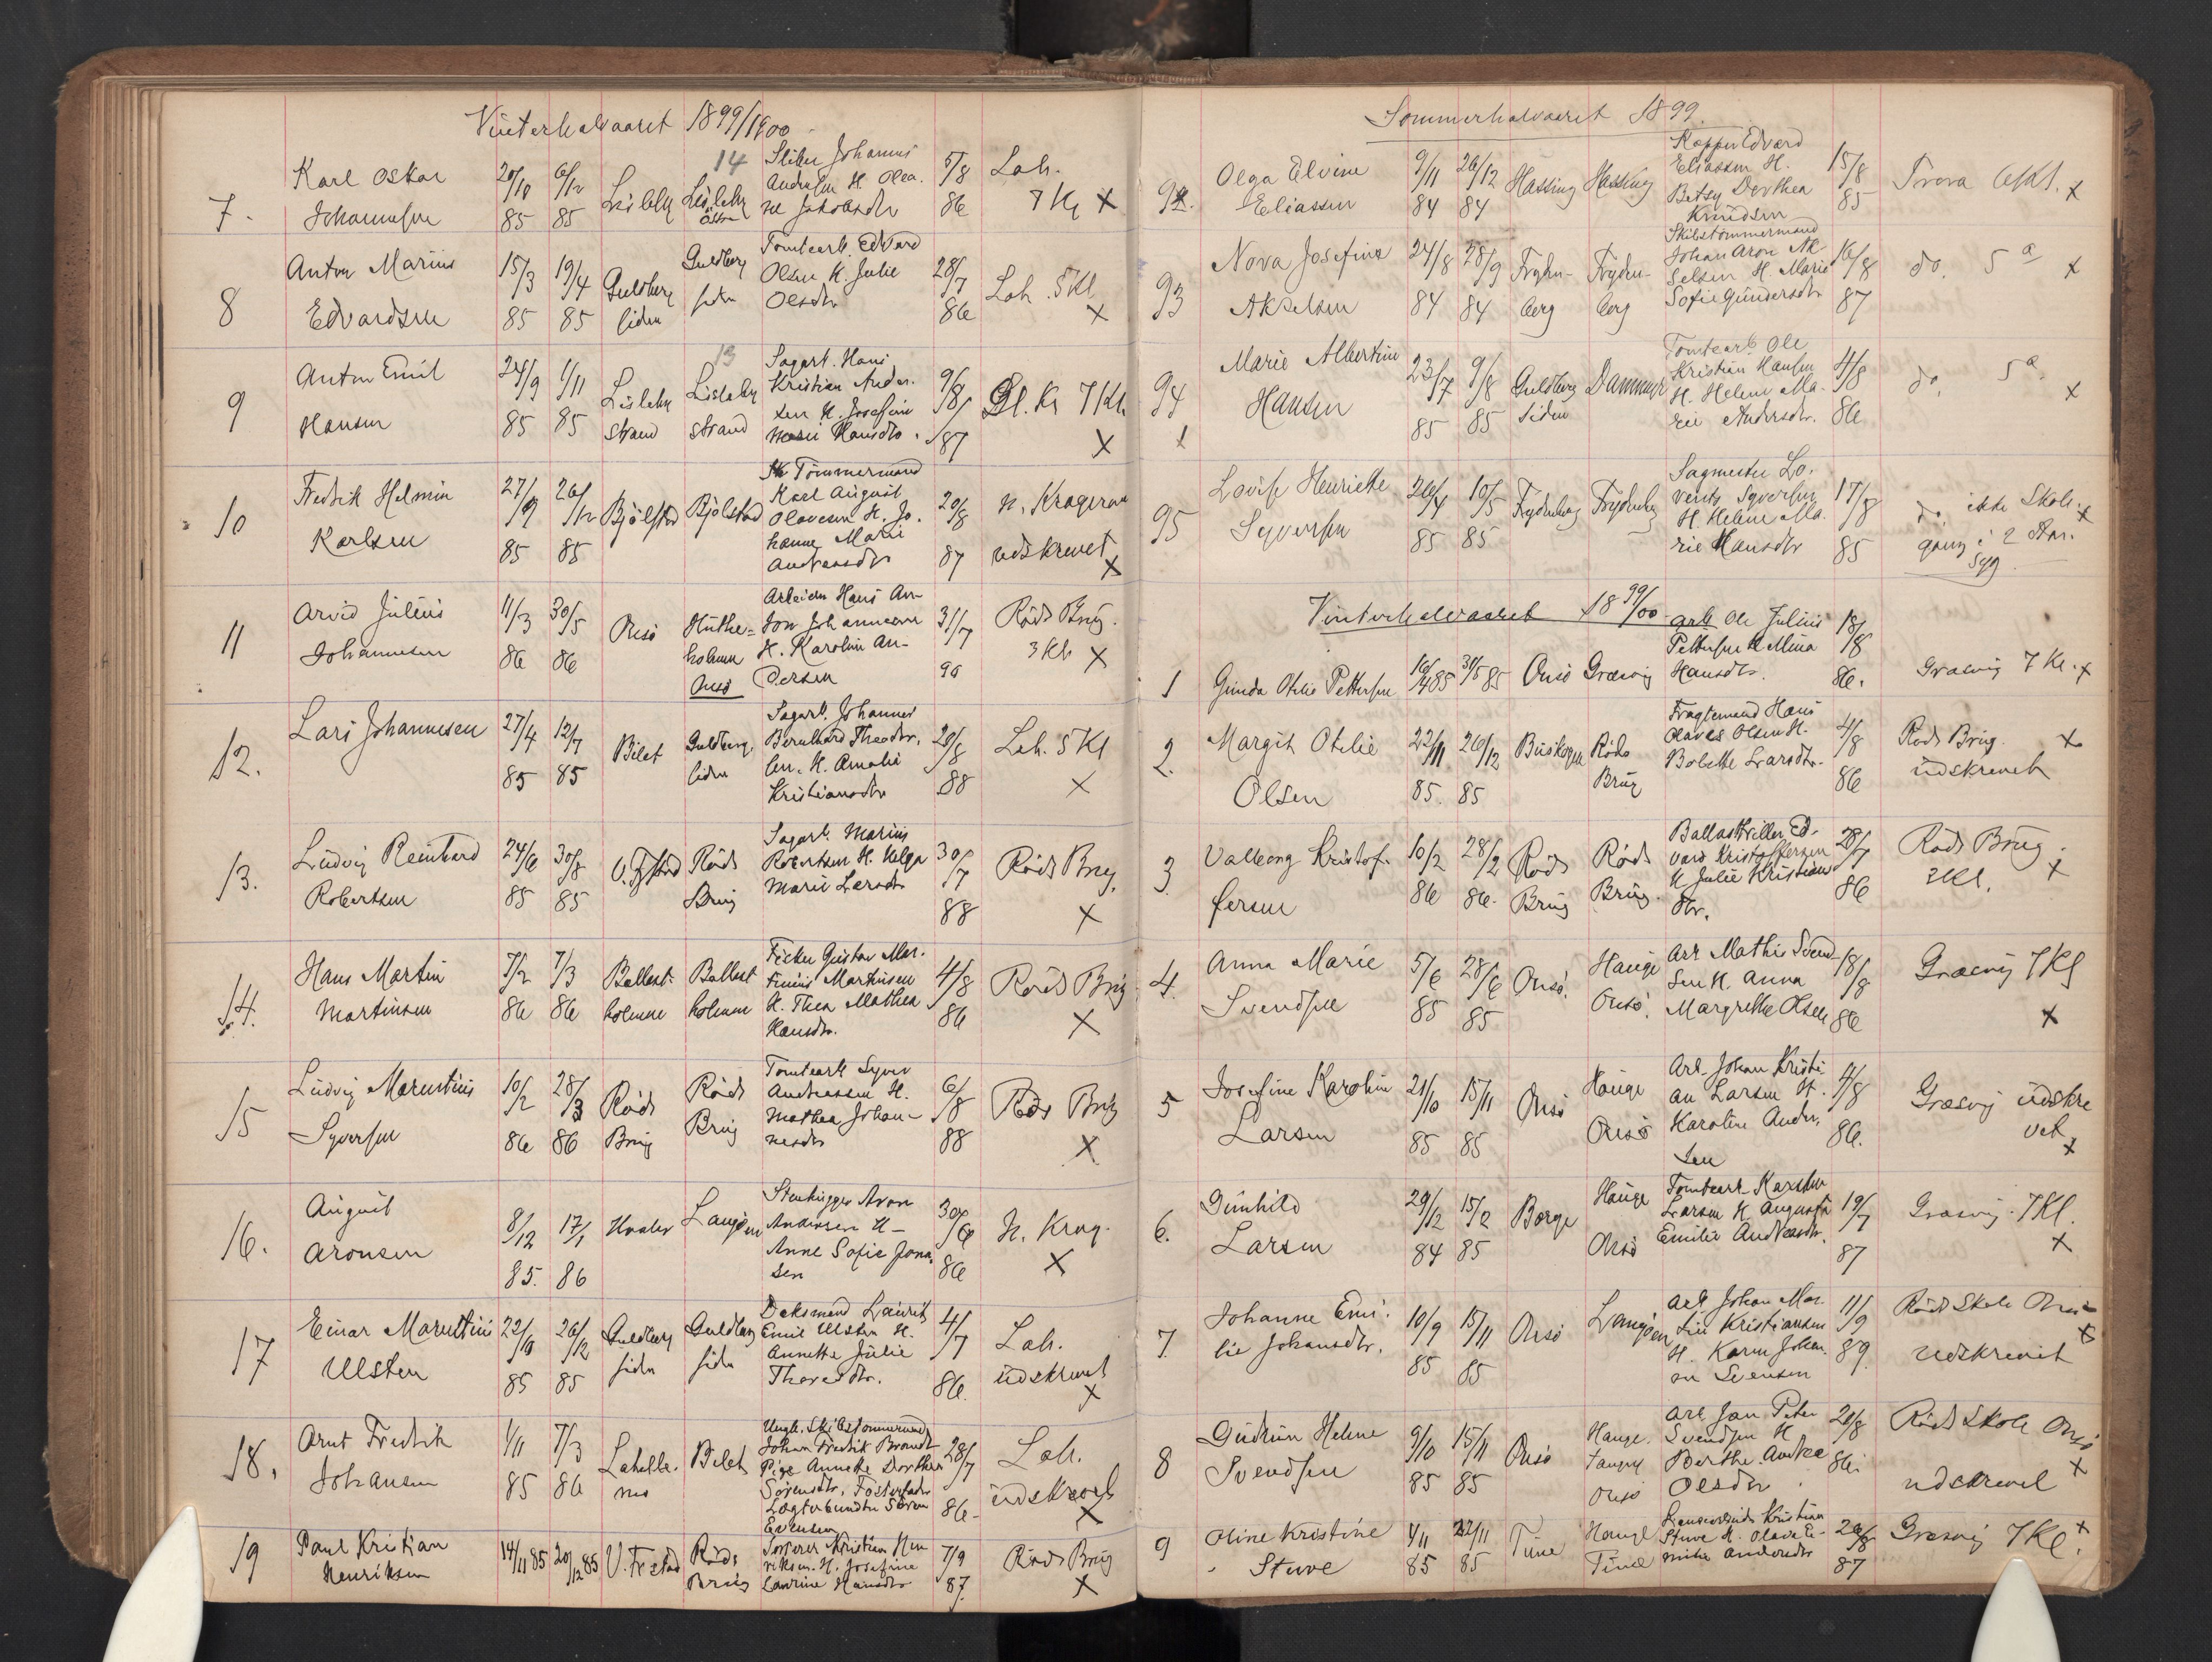 Vinterhalvaaret 1899/1900
7. Karl Oskar Johannesen 20/10 85 6/12 85 Lisleby 14 Lisleby Östre Sliber Johannes Andresen H. Olea. ne Jakobsdtr 5/8 86 Lah. 7 Kl X
8 Anton Marius Edvardsen 15/3 85 19/4 85 Guldberg siden Guldberg siden Tomtearb. Edvard Olsen H. Julie Olsdtr 28/7 86 Lah. 5 Kl X
9 Anton Emil Hansen 24/9 85 1/11 85 Lisleby strand 13 Lisleby strand Sagarb. Hans Kristian Ander. sen H. Josefine Marie Hansdtr. 9/8 87 Gl. Kr 7 Kl. X
10 Fredrik Helmin Karlsen 27/9 85 26/12 85 Bjölstad Bjölstad Tömmermand Karl August Olavesen H. Jo. hanne Marie Andreasdtr 20/8 87 N. Krageröe udskrevet X
11 Arvid Julius Johannesen 11/3 86 30/5 86 Onsö Huthe= holmen Onsö Arbeider Hans An- ton Johannesen H. Karoline An- dersen 31/7 90 Röds Brug. 3 Kl X
12. Lars Johannesen 27/4 85 12/7 85 Bilet Guldberg. siden Sagarb. Johannes Bernhard Theodor. sen. H. Amalie Kristiansdtr 20/8 88 Lah. 5 Kl X
13. Ludvig Reinhard Robertsen 24/6 85 30/8 85 V. Fjstad Röds Brug Sagarb. Marius Robertsen H. Helga Marie Larsdtr 30/7 88 Röds Brug. X
14. Hans Martin Martinsen 7/2 86 7/3 86 Ballast. holmen Ballast holmen Fisker Gustav Mar. tinius Martinsen H. Thea Mathea Hansdtr. 4/8 86 Röds Brug X
15 Ludvig Marentius Syversen 10/2 86 28/3 86 Röds Brug Röds Brug Tomtearb Syver Andreassen H. Mathea Johan- nesdtr 6/8 88 Röds Brug X
16. August Aronsen 8/12 85. 17/1 86 Hvaler Langöen Stenhugger Aron Andersen H- Anne Sofie Jona. sen 30/6 86 N. Krag. X
17 Einar Marentius Ulsten 22/10 85 26/12 85 Guldberg siden Guldberg siden Dæksmand Laurits Emil Ulsten H. Annette Julie Thoresdtr. 4/7 86. Lah. udskrevet X
18. Arnt Fredrik Johansen 1/11 85 7/3 86 Lahelle. Bilet Ungk. Skibstømmermand Johan Fredrik Brandt Pige Annette Dorthea Sörensdtr, Fosterfader Lagterbundter Sören Evensen 28/7 86- Lah. udskrevet X
19 Paul Kristian Henriksen 14/11 85 20/12 85 V. Frestad Röds Brug Snører Kristian Hen riksen. H. Josefine Laurine Hansdtr 7/9 87. Röds Brug X
Sommerhalvaaret 1899.
92. Olga Elvine Eliassen 9/11 84 26/12 84 Hassing Hassing Kapper Edvard Eliassen H. Betsy Dorthea Knudsen 15/8 85 Trara 6 Kl. X
93 Nora Josefine Akselsen 24/8 84 28/9 84 Fryden- berg Fryden- berg Skibstømmermand Johan Aron Ak selsen H. Marie Sofie Gundersdtr 16/8 87 do. 5 a X
94 Marie Albertine Hansen 23/7 85 9/8 85 Guldberg siden Dammyr Tomtearb. Ole Kristian Hansen H. Helene Ma- rie Andersdtr. 4/8 86 do. 5 a. X
95 Lovise Henriette Syversen 26/4 85 10/5 85 Frydenberg Frydenberg Sagmester Lo. rents Syversen H. Helene Ma. rie Hansdtr 17/8 85 do. ikke Skole. gang i 2 Aar. syg X
Vinterhalvaaret 1899/00
1 Gunda Otilie Pettersen 16/4 85 31/5 85 Onsö Græsvig arb Ole Julius Pettersen H Mina Hansdtr. 18/8 86. Græsvig 7 Kl. X
2. Margit Otilie Olsen 22/11 85. 26/12 85 Buskogen Röds Brug Fragtemand Hans Olaves Olsen H. Bolette Larsdtr. 4/8 86 Röds Brug. udskrevet X
3. Valborg Kristof. fersen 10/2 86 28/2 86. Röds Brug Röds Brug. Ballasttriller Ed- vard Kristoffersen H Julie Kristians dtr. 28/7 86 Röds Brug. 2 Kl. X
4. Anna Marie Svendsen 5/6 85 28/6 85 Onsö. Hauge Onsö. Arb Mathis Svend- sen H. Anna Margrethe Olsen 18/8 86 Græsvig 7 Kl X
5 Josefine Karoline Larsen 21/10 85 15/11 85 Onsö Hauge Onsö Arb. Johan Kristi an Larsen H. Karoline Ander. sen 4/8 86. Græsvig udskre vet X
6. Gunhild Larsen 29/12 84 15/2 85 Borge Hauge Onsö Tomtearb Karsten Larsen H Augusta Emilie Andreasdtr. 19/7 87 Græsvig. 7 Kl. X
7. Johanne Emi. lie Johansdtr. 10/9 85 15/11 85 Onsö Langöen Arb Johan Mar. tin Kristiansen H. Karen Johan. ne Svensen 11/9 89. Röds Skole Onsö udskrevet X
8 Gudrun Helene Svendsen 9/10 85 15/11 85 Onsö Hauge. Onsö Arb Jan Peter Svendsen H Berthe Andrea Olsdtr 20/8 86. Röds Skole Onsö udskrevet X
9 Oline Kristine Stuve 4/11 85 22/11 85 Tune Hauge Tune Kristian Stuve H. Olava E- milie Andersdtr 20/8 87 Græsvig 7 Kl. X